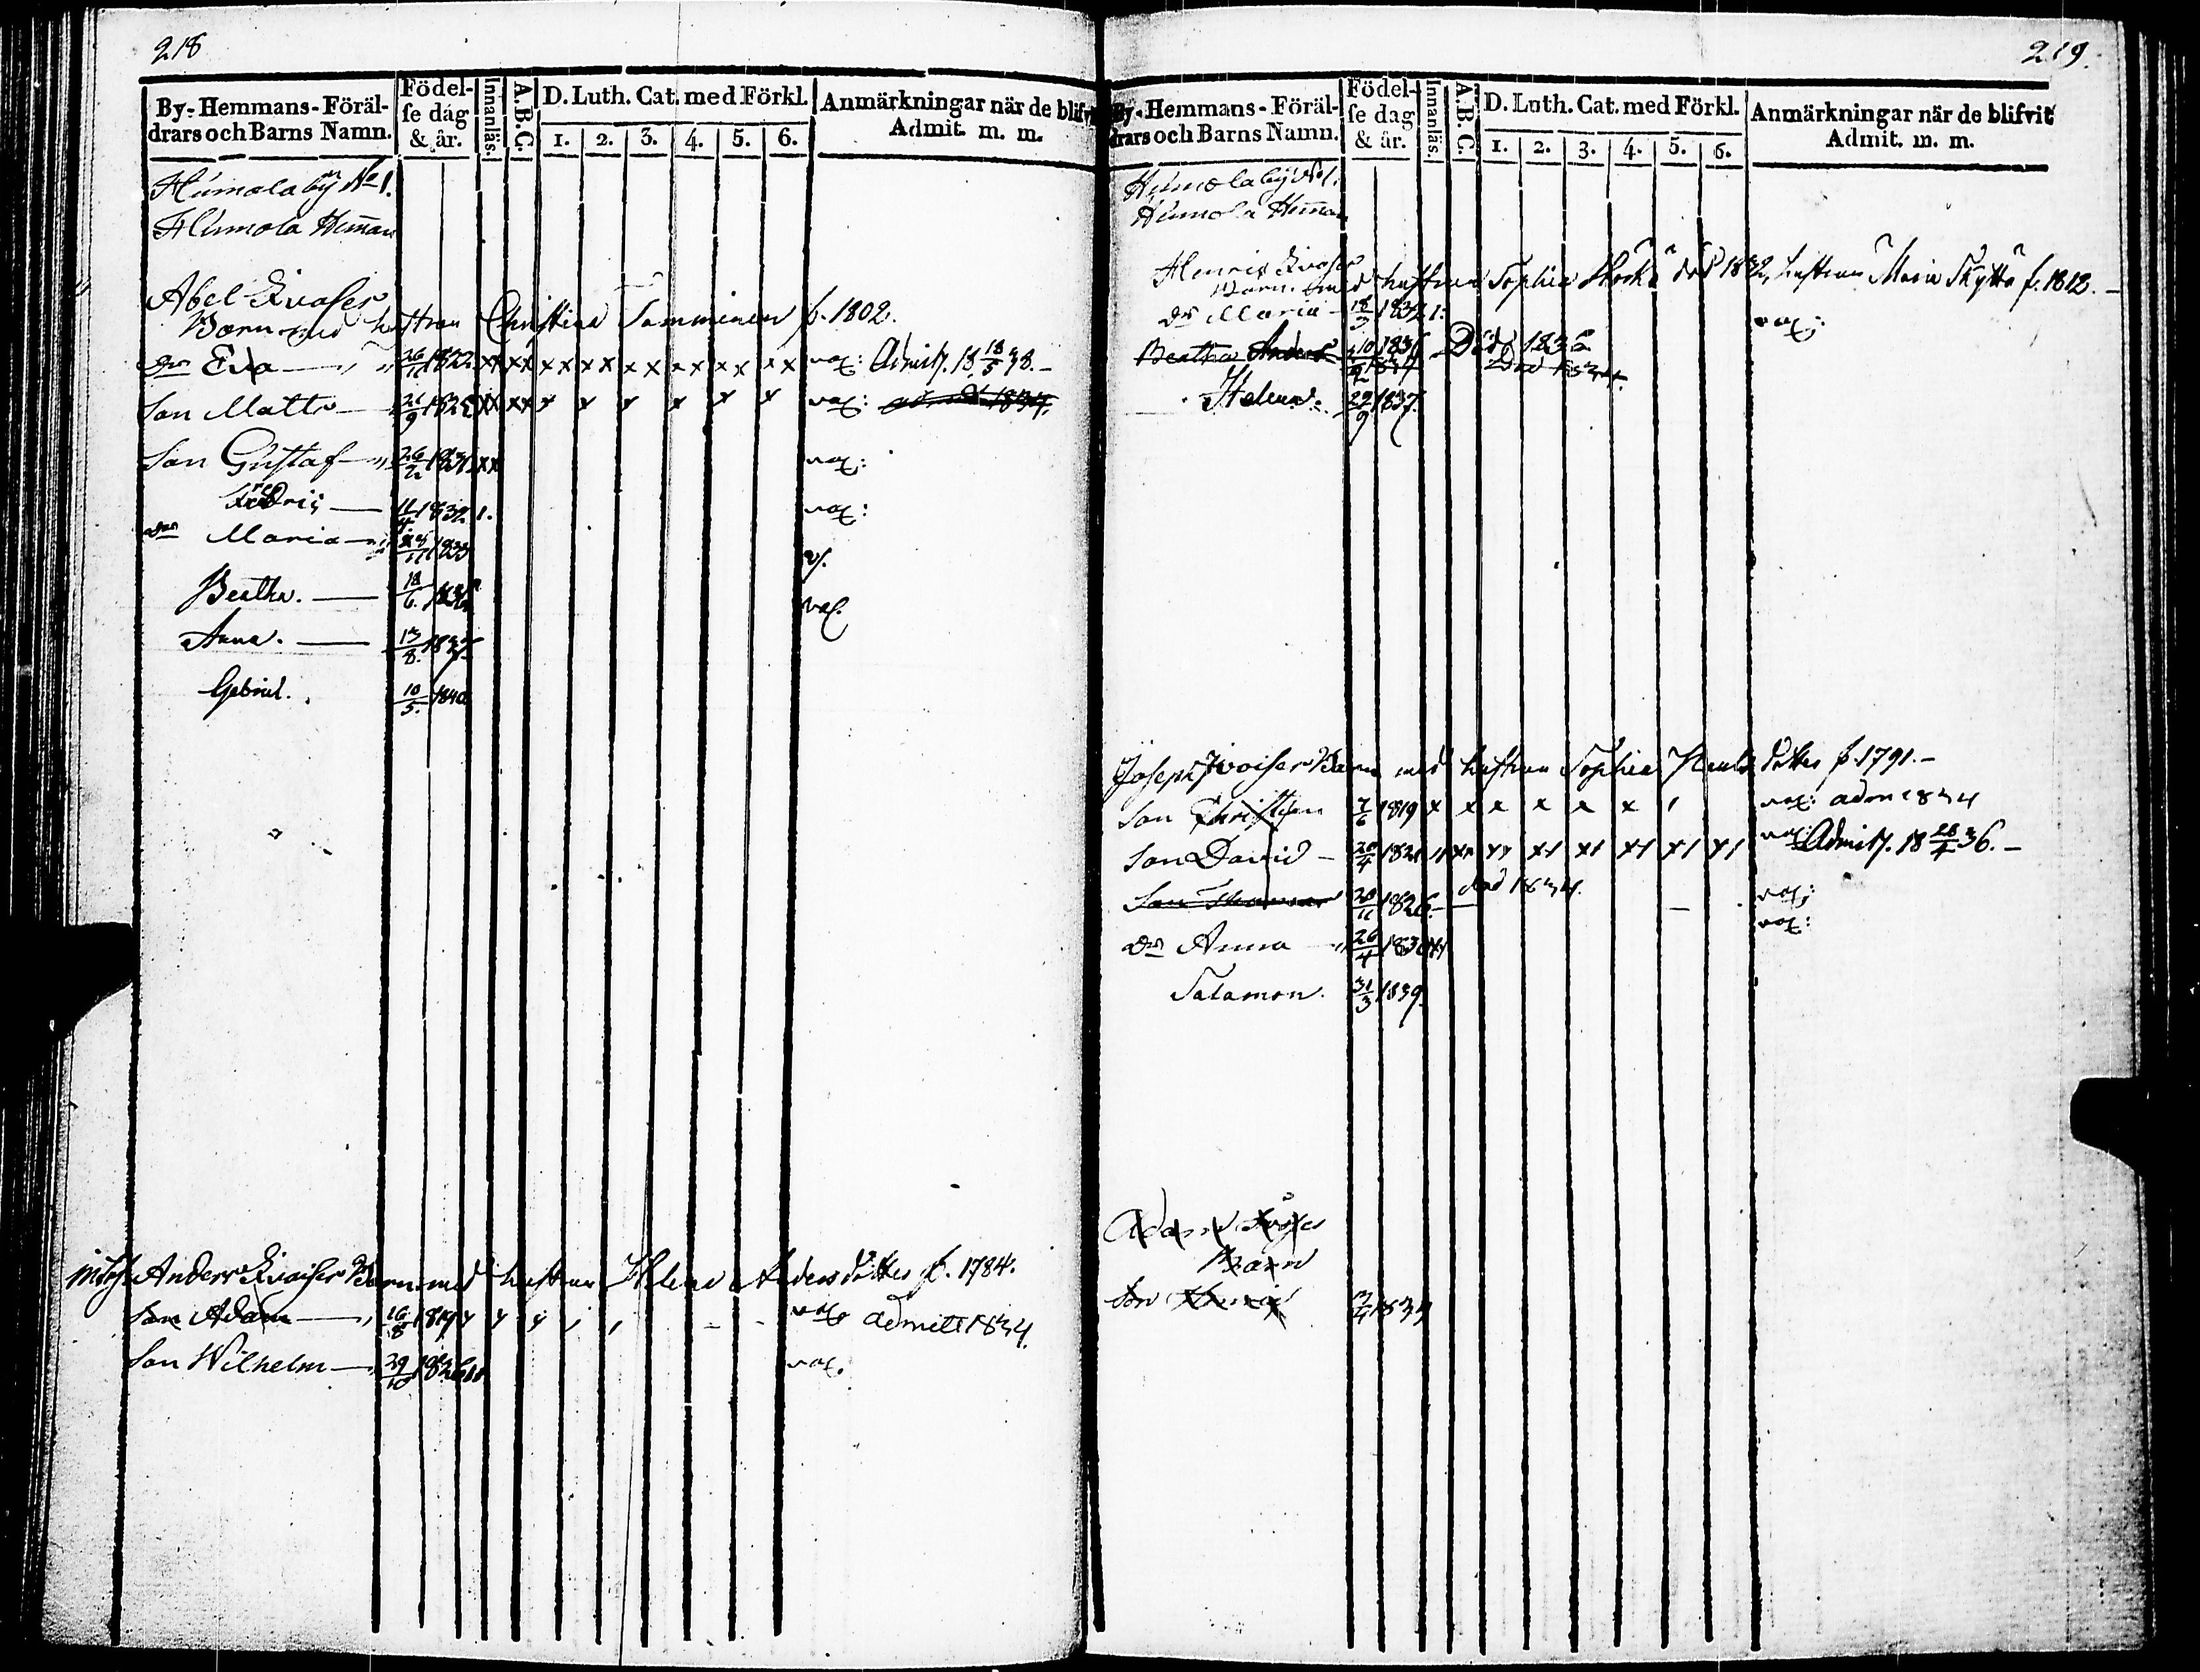 218
By- Hemmans- Föräl-
drars och Barns Namn.
Födel-
se dag
& år.
Innanläs.
A.B.C.
D. Luth. Cat. med Förkl.
1. 2. 3. 4. 5. 6.
Anmärkningar när de blifvit
Admit. m. m.
Humola by No 1.
Humola Heman
Abel Kvaiser
Barn med hustrun Christina Somminen f. 1802.
dr Eva 26/11 1822 xx xx xx xx xx xx xx xx vax: Admitt. 18 18/5 38.
Son Matts 21/9 1825 xx xx x x x x x x vax: admitt 1834.
Son Gustaf 26/2 1830 xx vax:
Fredric 11/4 1832 1. vax:
dr Maria 25/11 1833 v.
Beatha. 18/6. 1835 vax.
Anna. 13/8. 1837
Gabriel. 10/5. 1840
Anders Kvaiser Barn med hustrun Helena Andersdotter f. 1784.
Son Adam 16/8 1819 vax admitt 1834.
Son Wilhelm 29/10 1826 vax.
219.
By- Hemmans- Föräl-
drars och Barns Namn.
Födel-
se dag
& år.
Innanläs.
A.B.C.
D. Luth. Cat. med Förkl.
1. 2. 3. 4. 5. 6.
Anmärkningar när de blifvit
Admit. m. m.
Humola by No 1.
Humola Heman
Henric Kvaiser
Barn med hustrun Sophia död 1832, hustrun Maria Skyttä f. 1812.
dr Maria 18/3 1832 1. vax:
Beatha Anders 10/2 Död 1836
Död 1834.
Helena. 29/9 1837.
Joseph Kvaiser Barn med hustrun Sophia Paulsdotter f. 1791.
Son Christian 7/6 1819 x x x x x x vax: adm 1834
Son David 20/4 1821 vax: Admitt. 18 28/4 36.
Son Thomas 20/11 1826. död 1834. vax:
dr Anna 26/4 1830 vax:
Salamon. 31/3 1839.
Adam Kvaiser
Barn
Son 1834